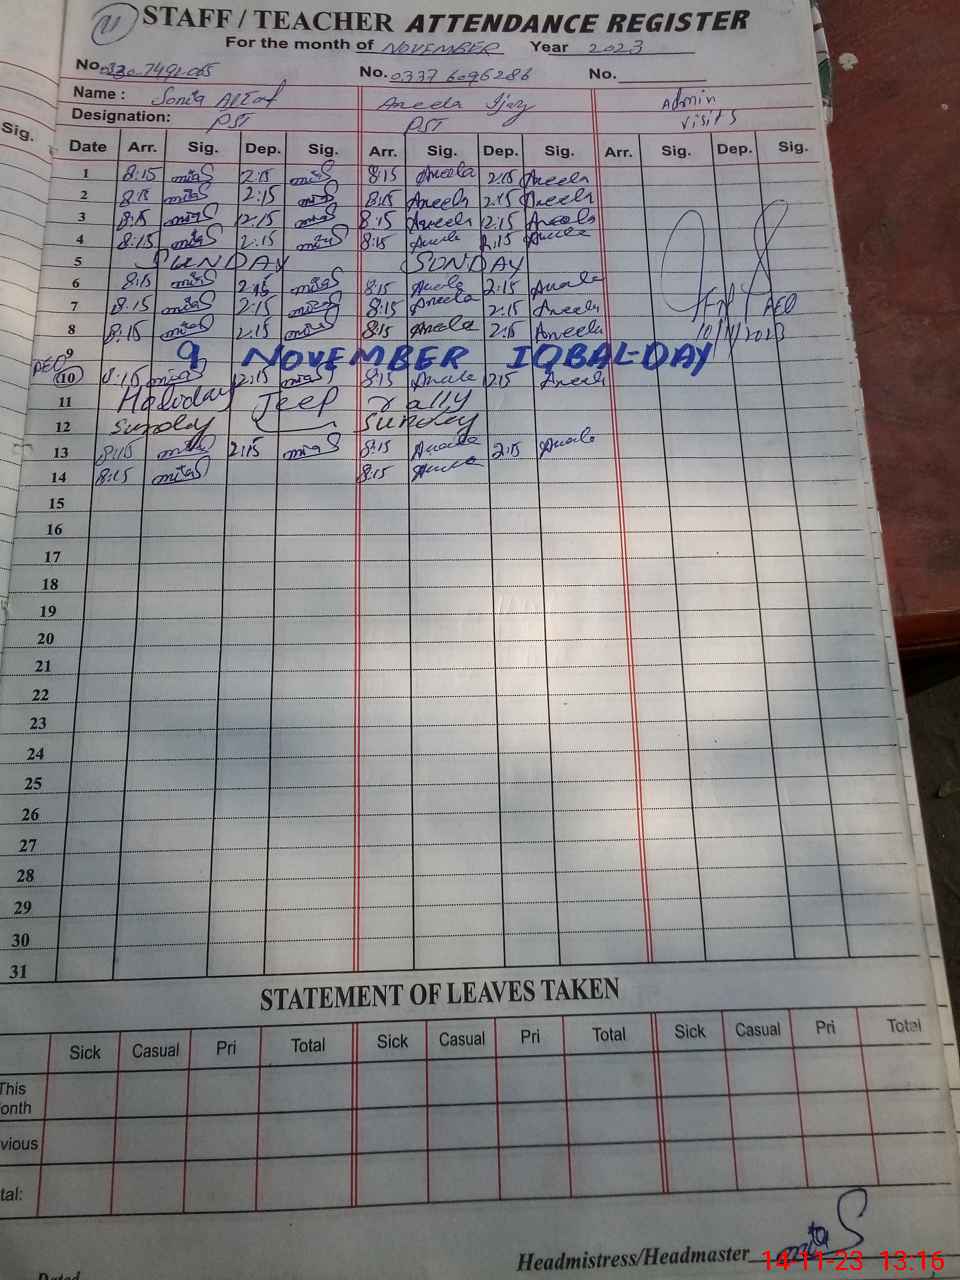 11 STAFF / TEACHER ATTENDANCE REGISTER
For the month of NOVEMBER Year 2023
No. No. 0337 6096286 No.
Name : Sonia Altaf Aneela Ijaz Admin
Designation: PST PST visits
Sig. Date Arr. Sig. Dep. Sig. Arr. Sig. Dep. Sig. Arr. Sig. Dep. Sig.
1 8:15 2:15 8:15 Aneela 2:15 Aneela
2 8:15 2:15 8:15 Aneela 2:15 Aneela
3 8:15 2:15 8:15 Aneela 2:15 Aneela
4 8:15 2:15 8:15 Aneela 2:15 Aneela
5 SUNDAY SUNDAY
6 8:15 2:15 8:15 Aneela 2:15 Aneela
7 8:15 2:15 8:15 Aneela 2:15 Aneela
8 8:15 2:15 8:15 Aneela 2:15 Aneela 10/11/2023
9 9 NOVEMBER IQBAL-DAY
10 8:15 12:15 8:15 Aneela 12:15 Aneela
11 Holiday Jeep rally
12 Sunday Sunday
13 8:15 2:15 8:15 Aneela 2:15 Aneela
14 8:15 8:15 Aneela
15
16
17
18
19
20
21
22
23
24
25
26
27
28
29
30
31
STATEMENT OF LEAVES TAKEN
Sick Casual Pri Total Sick Casual Pri Total Sick Casual Pri Total
This
onth
vious
tal:
Headmistress/Headmaster
Dated
14-11-23 13:16